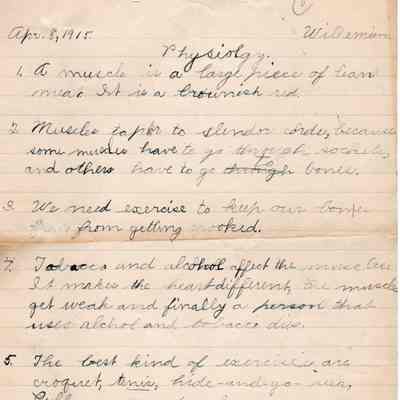 Apr. 8, 1915.
Physiolgy.
1. A muscle is a large piece of lean
meat It is a brownish red.
2. Muscles taper to slendor cords, because
some muscles have to go through sockets,
and others have to go through bones.
3. We need exercise to keep our bones
from getting crooked.
4. Tobacco and alcohol affect the muscles.
It makes the heart different, the muscles
get weak and finally a person that
uses alchol and tobacco dies.
5. The best kind of exercise are
croquet, tenis, hide-and-go-seek,